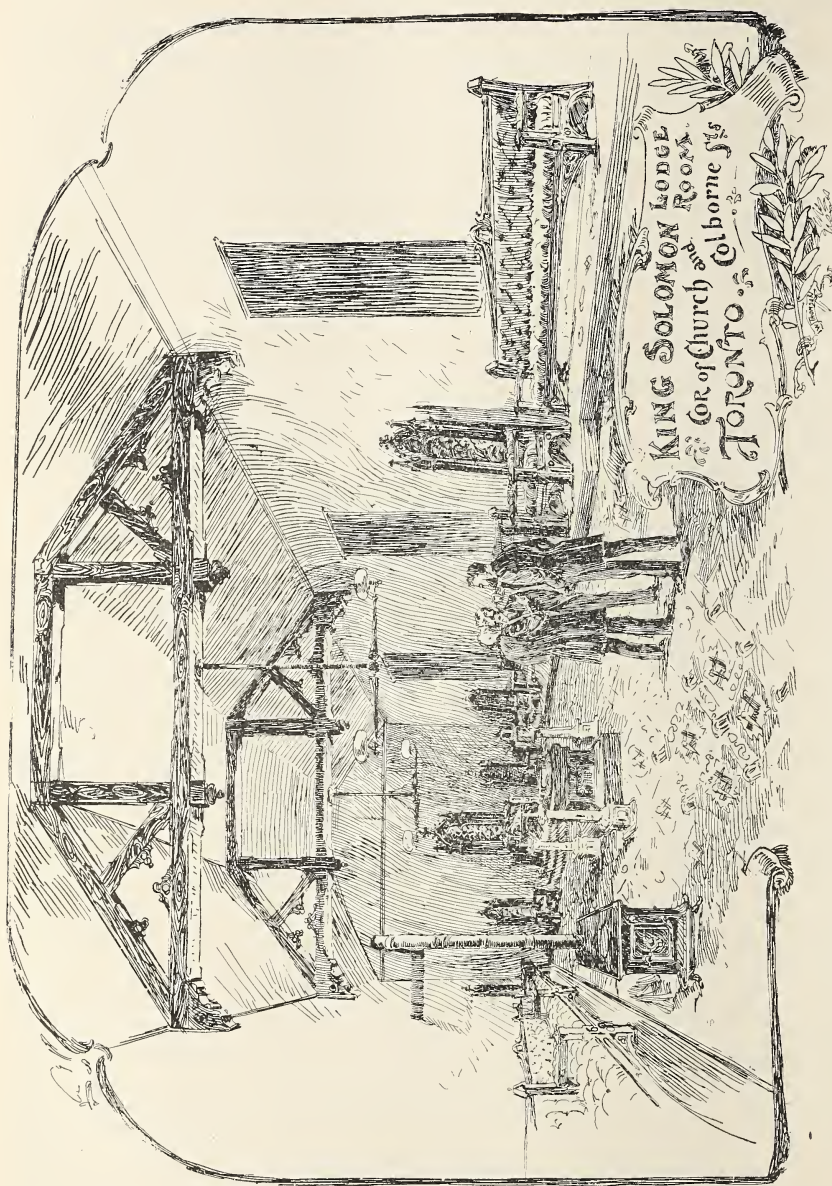 KING SOLOMON LODGE
ROOM.
COR of Church and Colborne Sts
TORONTO